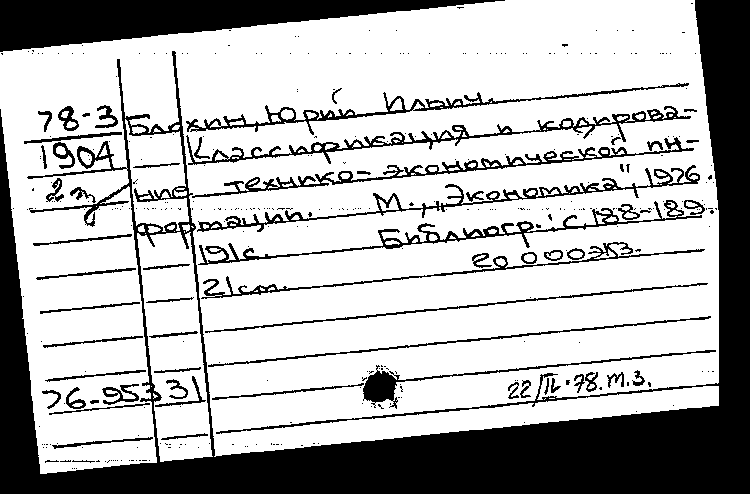 78-3 Блохин, Юрий Ильич.
1904 Классификация и кодирова-
2 з ние технико-экономической ин-
формации. М., „Экономика“, 1976.
191с. Библиогр.: с. 188-189.
21см. 20 000экз.
76-95331
22/II-78. т.з.